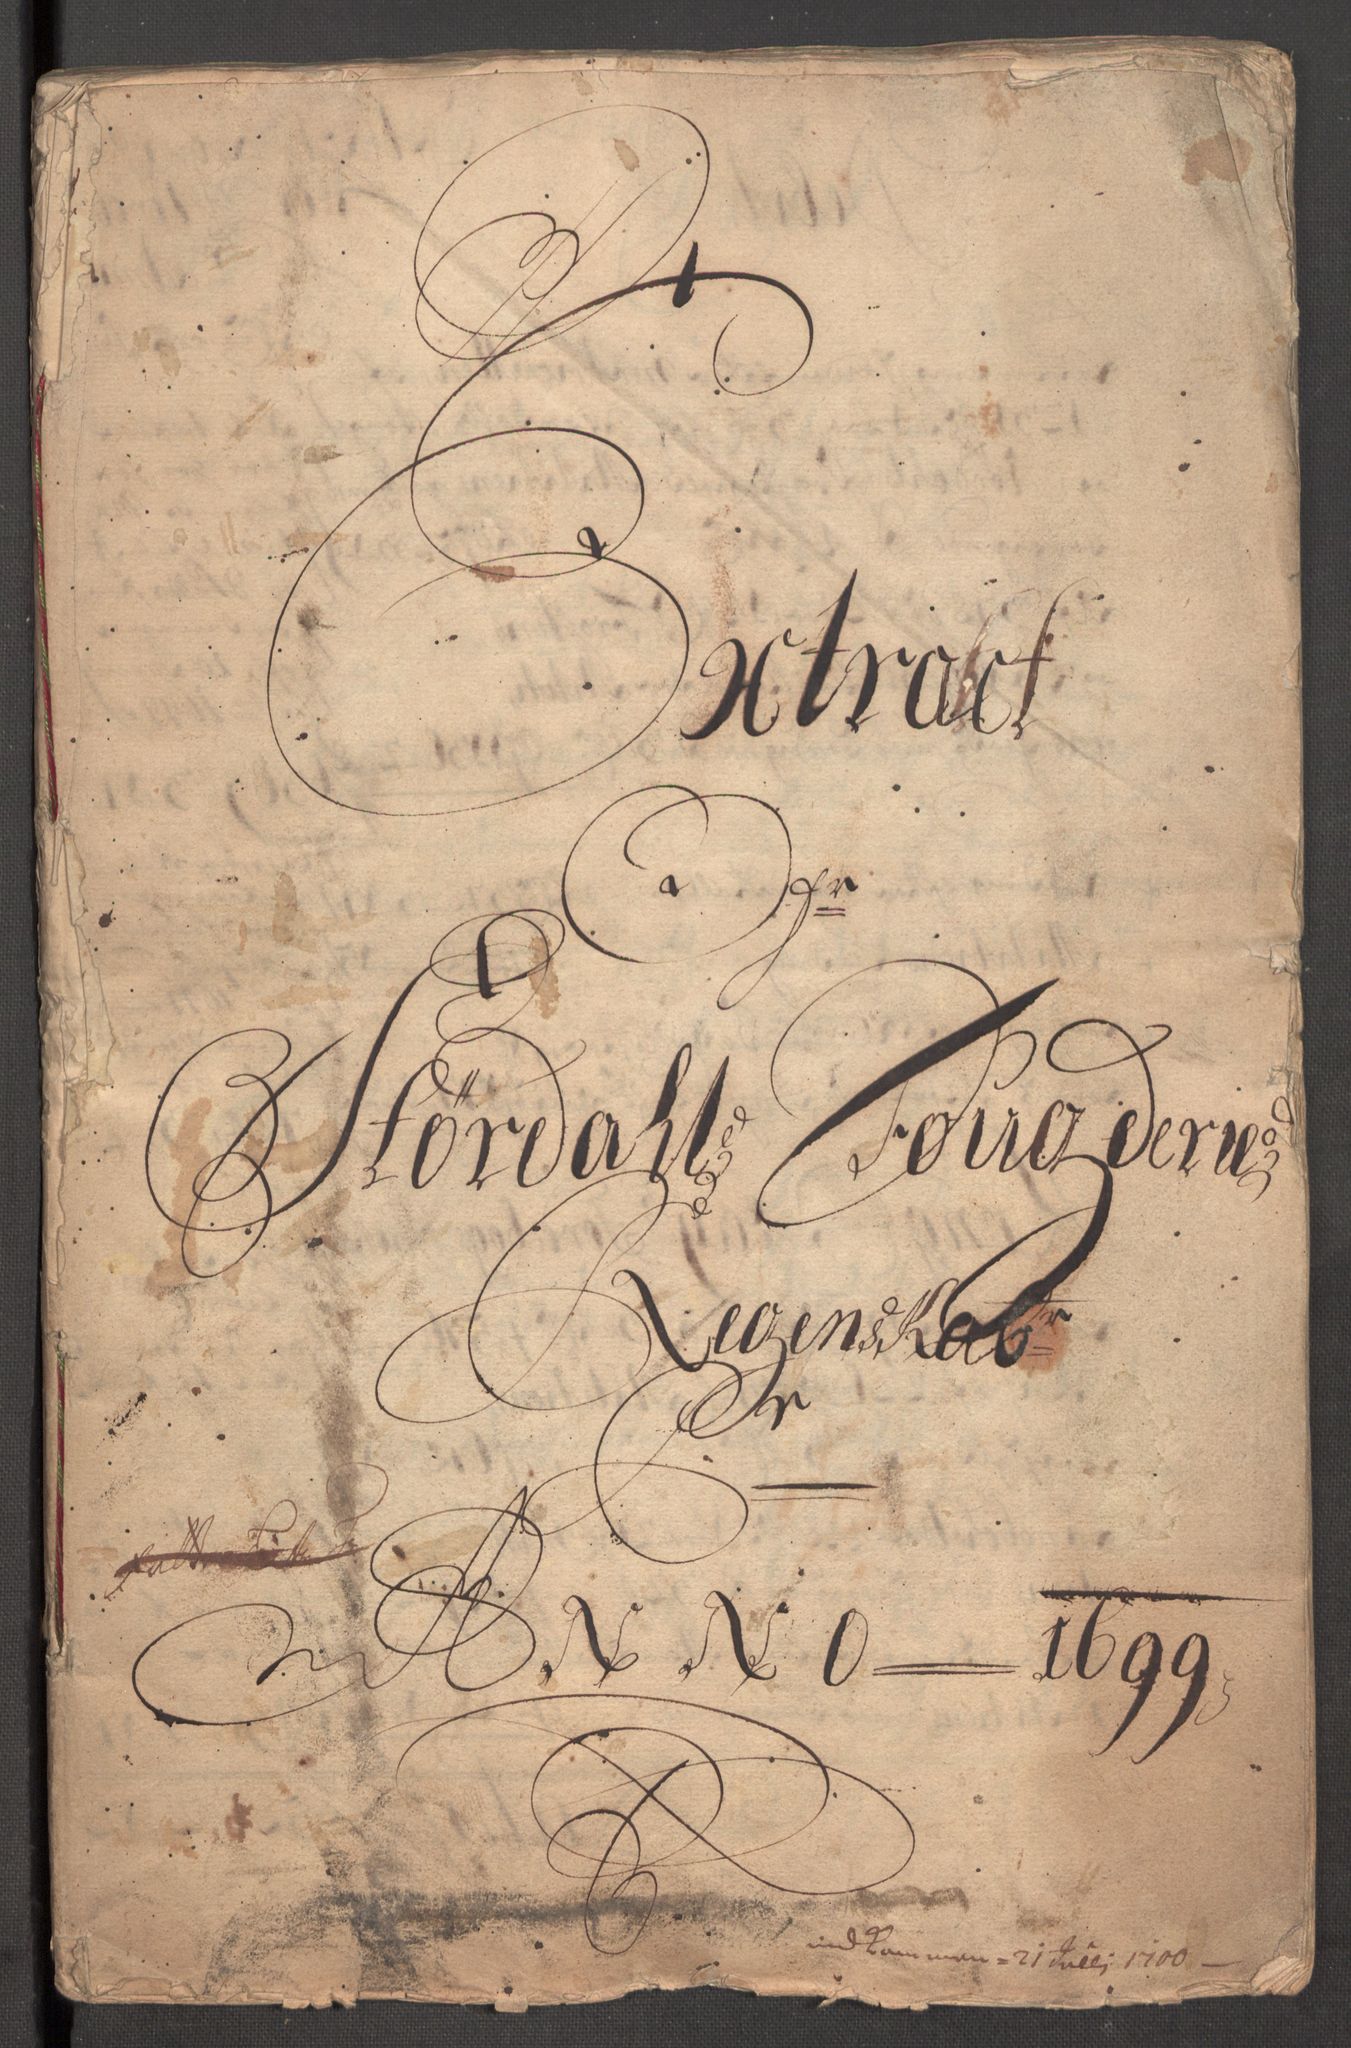 Extract
Ofr
Stördahls Fougderies
Regenskabr
Pr
ANNO 1699
indkommen 21 Julli 1700